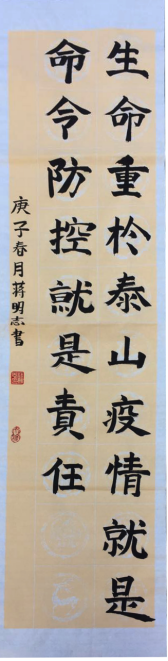 生命重於泰山疫情就是
命令防控就是責任
庚子春月蒋明志書